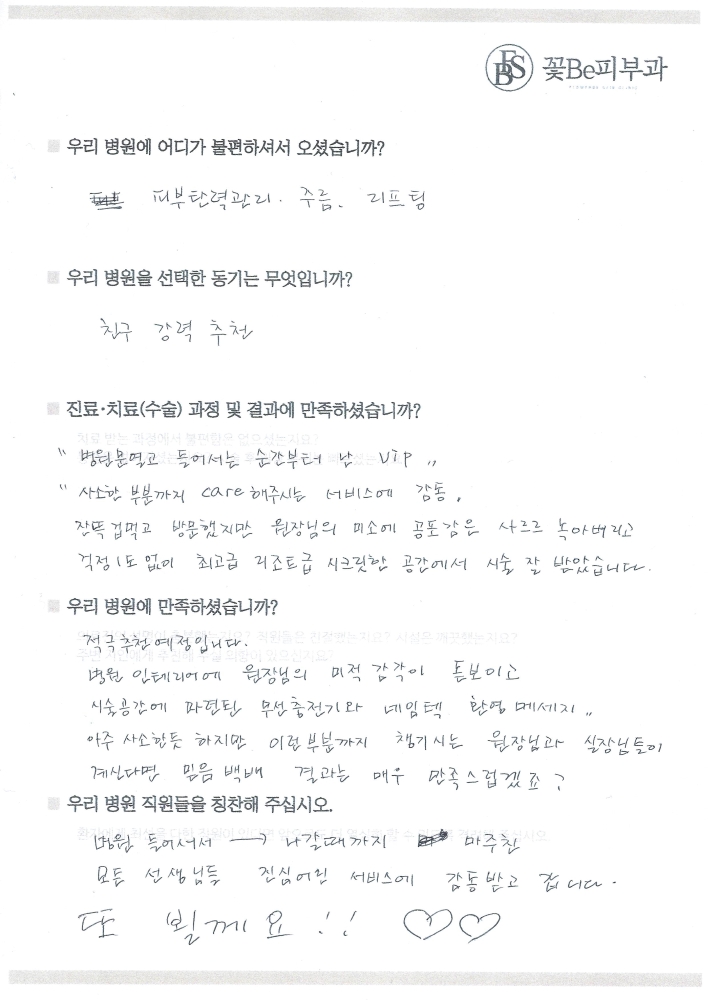 FBS 꽃Be피부과
우리 병원에 어디가 불편하셔서 오셨습니까?
피부탄력관리. 주름. 리프팅
우리 병원을 선택한 동기는 무엇입니까?
친구 강력 추천
진료·치료(수술) 과정 및 결과에 만족하셨습니까?
" 병원문열고 들어서는 순간부터 난 VIP "
" 사소한 부분까지 care해주시는 서비스에 감동.
잔뜩겁먹고 방문했지만 원장님의 미소에 공포감은 사르르 녹아버리고
걱정1도없이 최고급 리조트급 시크릿한 공간에서 시술 잘 받았습니다.
우리 병원에 만족하셨습니까?
적극추천예정입니다.
병원 인테리어에 원장님의 미적 감각이 돋보이고
시술공간에 마련된 무선충전기와 네임텍 환영 메세지 "
아주 사소한듯 하지만 이런부분까지 챙기시는 원장님과 실장님들이
계신다면 믿음 백배 결과는 매우 만족스럽겠죠?
우리 병원 직원들을 칭찬해 주십시오.
병원 들어서서 → 나갈때까지 마주친
모든 선생님들 진심어린 서비스에 감동받고 갑니다.
또 뵐께요!! ♡♡